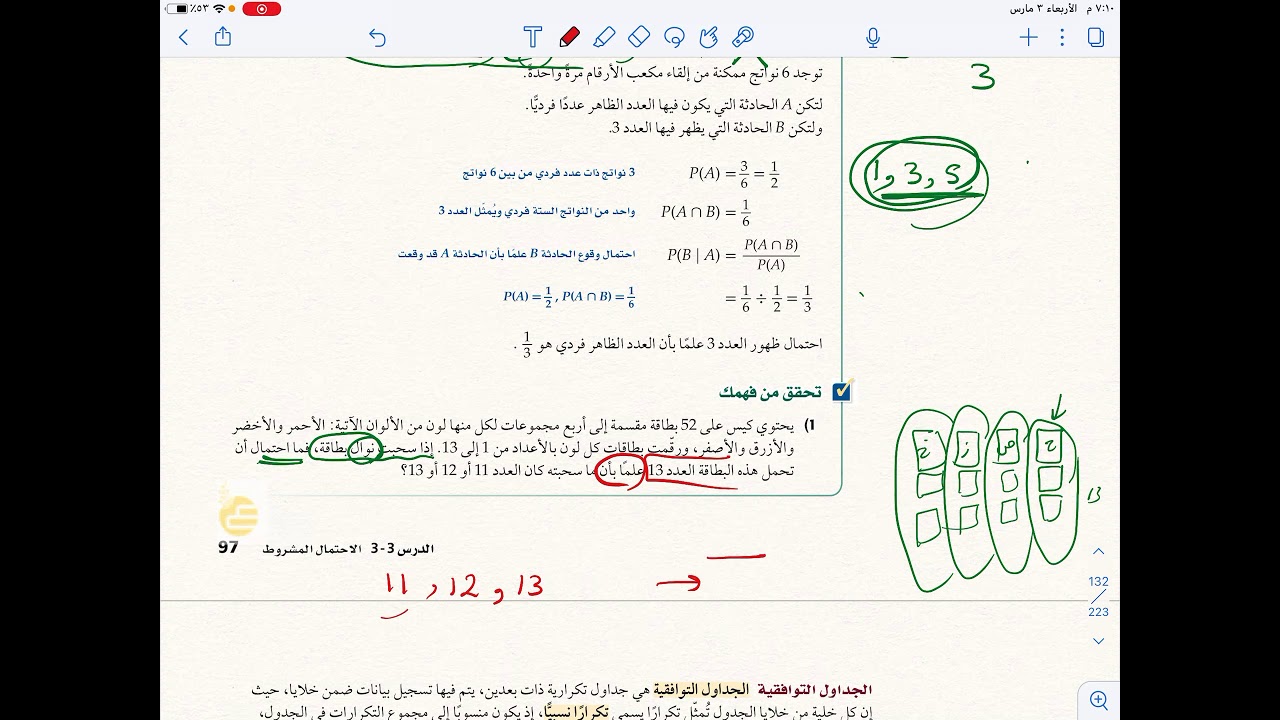 ٧:١٠ م الأربعاء ٣ مارس
٥٣٪
توجد 6 نواتج ممكنة من إلقاء مكعب الأرقام مرةً واحدةً.
3
لتكن A الحادثة التي يكون فيها العدد الظاهر عددًا فرديًّا.
ولتكن B الحادثة التي يظهر فيها العدد 3.
1, 3, 5
P(A) = 3/6 = 1/2
3 نواتج ذات عدد فردي من بين 6 نواتج
P(A ∩ B) = 1/6
واحد من النواتج الستة فردي ويُمثّل العدد 3
P(B | A) = P(A ∩ B)/P(A)
احتمال وقوع الحادثة B علمًا بأن الحادثة A قد وقعت
= 1/6 ÷ 1/2 = 1/3
P(A) = 1/2 , P(A ∩ B) = 1/6
احتمال ظهور العدد 3 علمًا بأن العدد الظاهر فردي هو 1/3 .
تحقق من فهمك
1) يحتوي كيس على 52 بطاقة مقسمة إلى أربع مجموعات لكل منها لون من الألوان الآتية: الأحمر والأخضر
والأزرق والأصفر، ورقّمت بطاقات كل لون بالأعداد من 1 إلى 13. إذا سحبت نوال بطاقة، فما احتمال أن
تحمل هذه البطاقة العدد 13 علمًا بأن ما سحبته كان العدد 11 أو 12 أو 13؟
13
الدرس 3-3 الاحتمال المشروط 97
11 , 12 , 13
132
223
الجداول التوافقية الجداول التوافقية هي جداول تكرارية ذات بعدين، يتم فيها تسجيل بيانات ضمن خلايا، حيث
إن كل خلية من خلايا الجدول تُمثّل تكرارًا يسمى تكرارًا نسبيًّا، إذ يكون منسوبًا إلى مجموع التكرارات في الجدول،